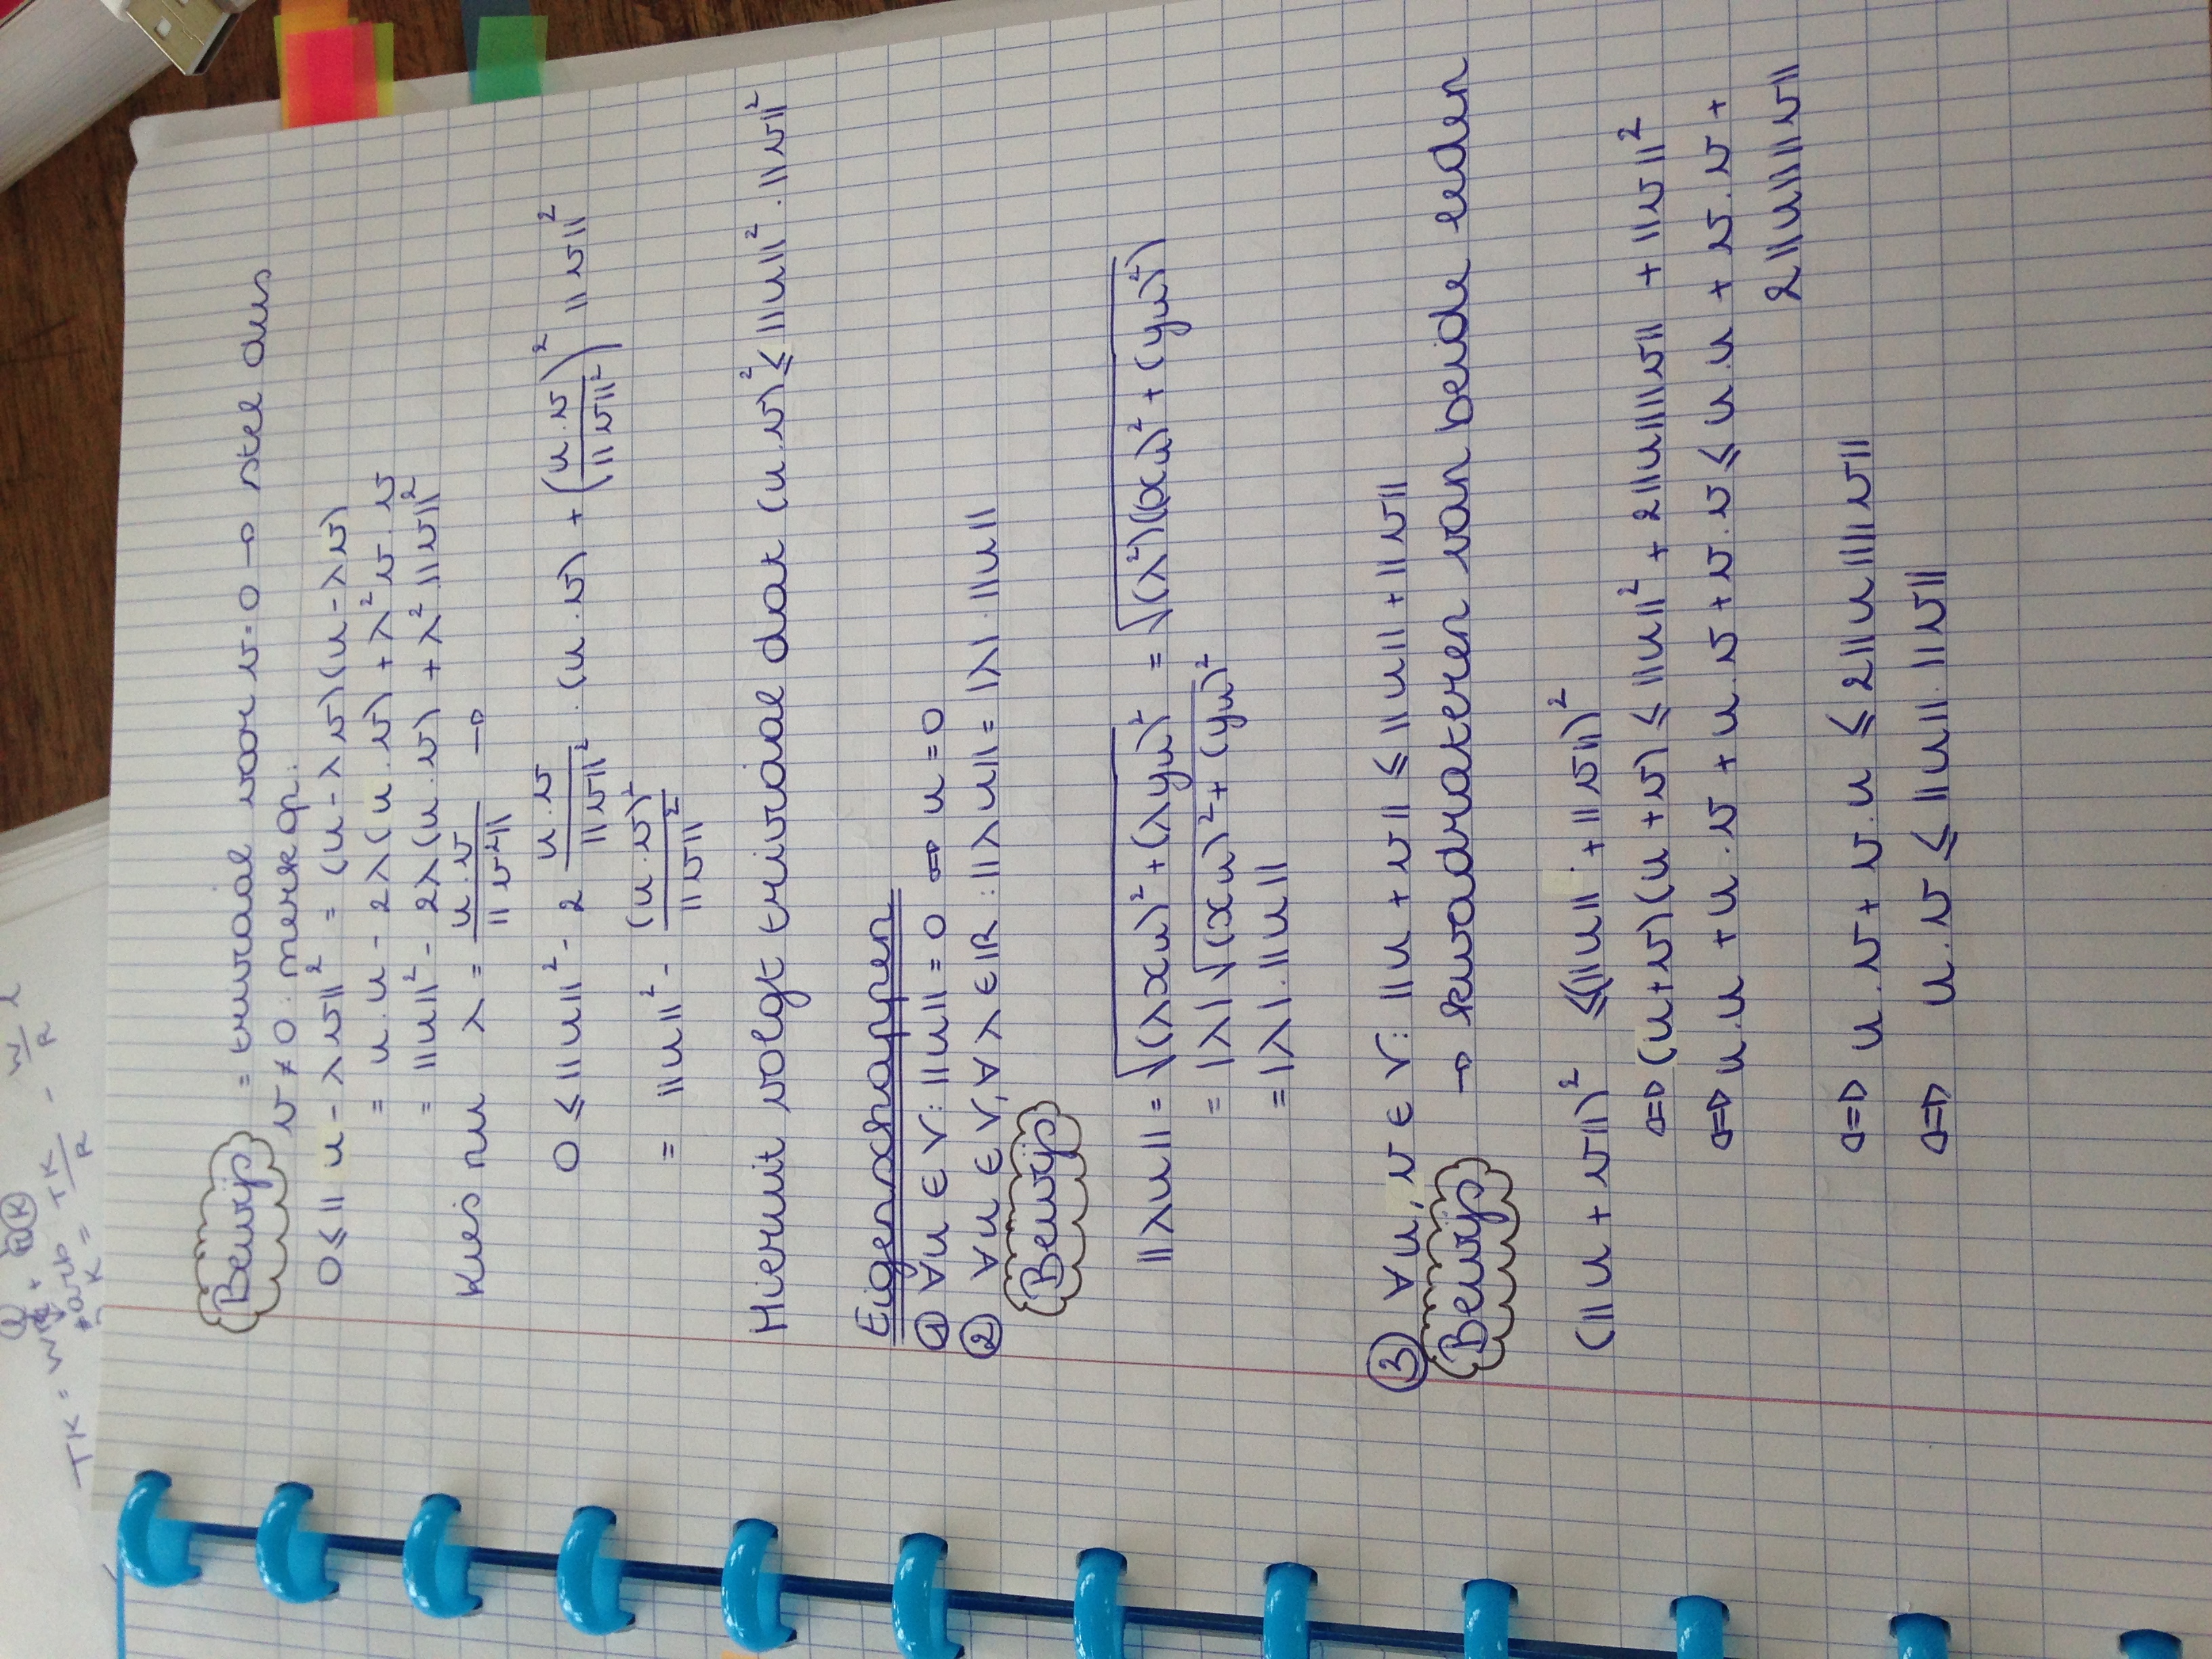 Bewijs = triviaal voor v=0 → stel dus
v ≠ 0. merk op:
0 ≤ ||u - λv||² = (u - λv)(u - λv)
= u.u - 2λ(u.v) + λ²v.v
= ||u||² - 2λ(u.v) + λ².||v||²
Kies nu λ = u.v / ||v²|| →
0 ≤ ||u||² - 2 u.v / ||v||² . (u.v) + (u.v / ||v||²)² ||v||²
= ||u||² - (u.v)² / ||v||²
Hieruit volgt triviaal dat (u.v)² ≤ ||u||².||v||²
Eigenschappen
① ∀u ∈ V: ||u|| = 0 ⇔ u = 0
② ∀u ∈ V, ∀λ ∈ IR: ||λu|| = |λ|.||u||
Bewijs
||λu|| = √(λxu)² + (λyu)² = √(λ²)((xu)² + (yu)²)
= |λ| √(xu)² + (yu)²
= |λ|.||u||
③ ∀u, v ∈ V: ||u + v|| ≤ ||u|| + ||v||
Bewijs → kwadrateren van beide leden
(||u + v||)² ≤ (||u|| + ||v||)²
⇔ (u+v)(u+v) ≤ ||u||² + 2||u||||v|| + ||v||²
⇔ u.u + u.v + u.v + v.v ≤ u.u + v.v +
2||u||||v||
⇔ u.v + v.u ≤ 2||u||||v||
⇔ u.v ≤ ||u||.||v||